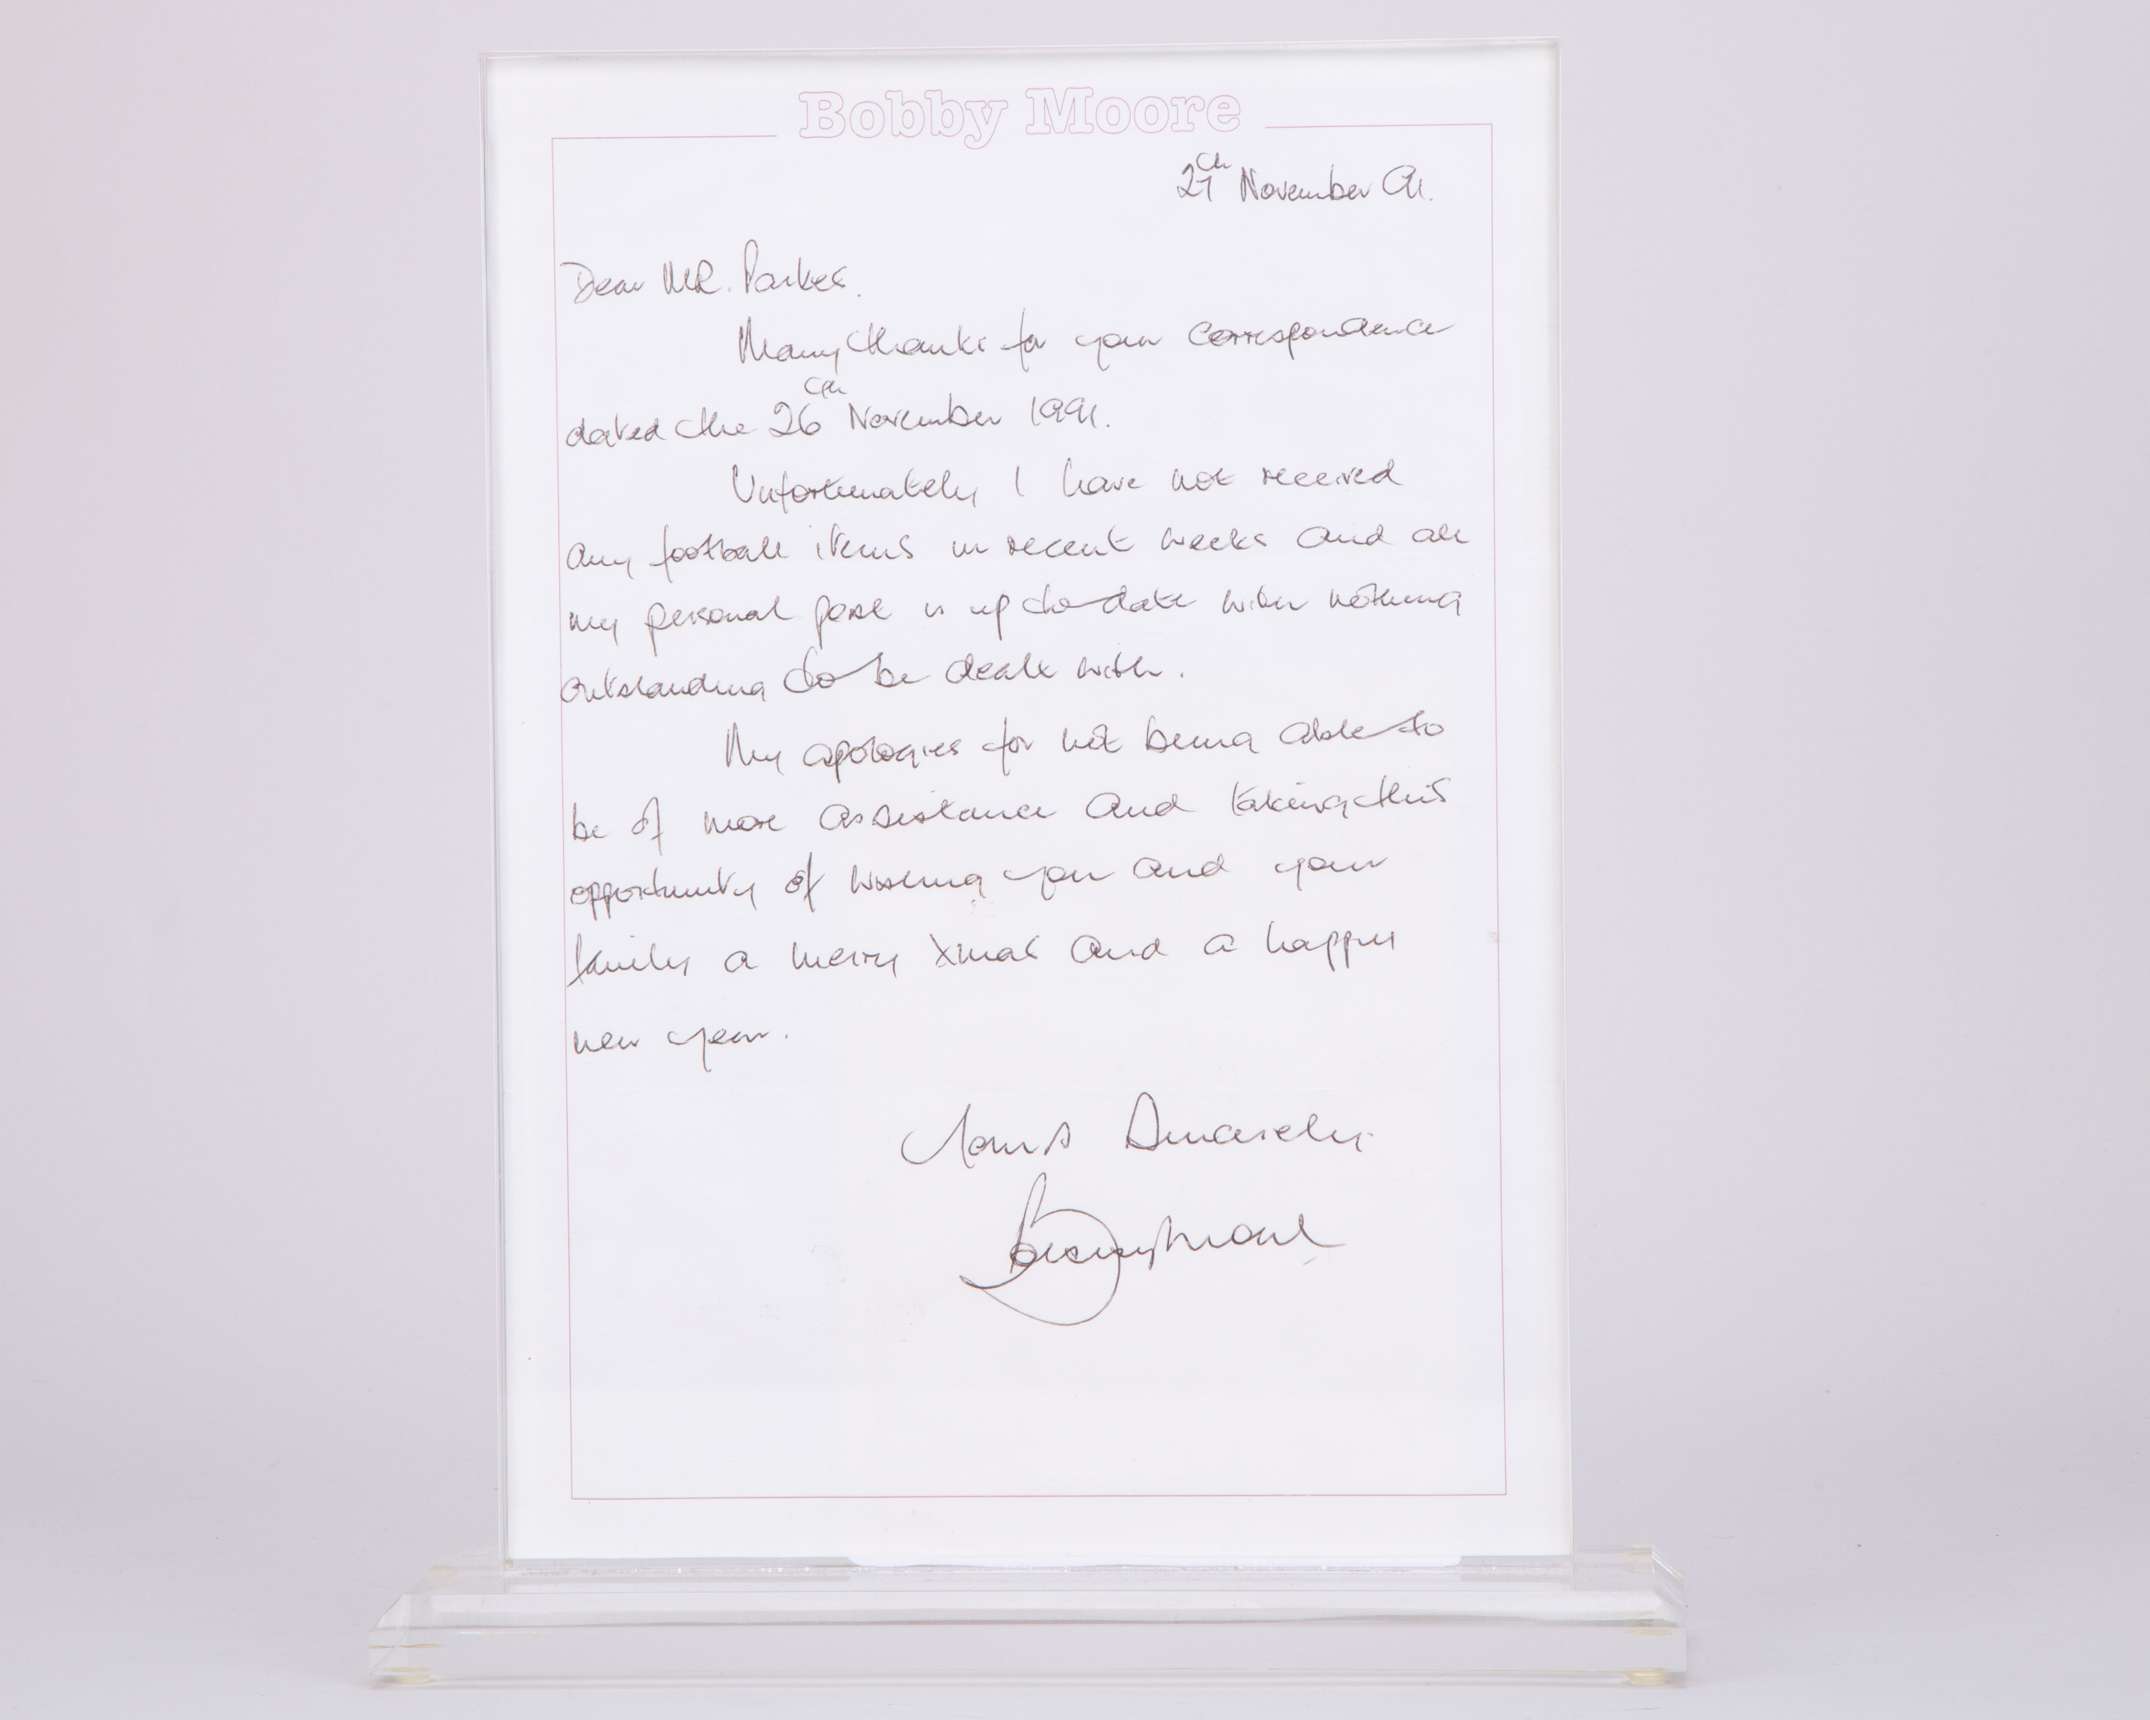 Bobby Moore
27th November 91.
Dear MR. Parkes.
Many thanks for your correspondence
dated the 26th November 1991.
Unfortunately I have not received
any football items in recent weeks and all
my personal post is up to date with nothing
outstanding to be dealt with.
My apologies for not being able to
be of more assistance and taking this
opportunity of wishing you and your
family a merry Xmas and a happy
new year.
Yours Sincerely.
Bobby Moore